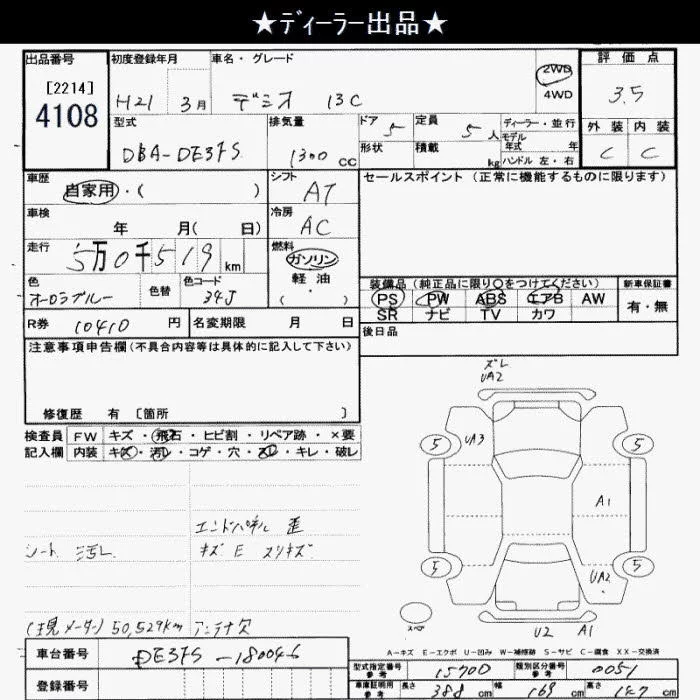 ★ディーラー出品★
出品番号 初度登録年月 車名・グレード 評価点
[2214] 4108 H21 3月 デミオ 13C 2WD 4WD 3.5
型式 排気量 ドア 5 定員 5人 ディーラー・並行 外装 内装
DBA-DE3FS 1300 CC 形状 積載 kg モデル年式 年 ハンドル 左・右 C C
車歴 自家用・( ) シフト AT セールスポイント (正常に機能するものに限ります)
車検 年 月( 日) 冷房 AC
走行 5万0千519km 燃料 ガソリン 軽油 ( ・ )
色 オーロラブルー 色替 色コード 34J
装備品 (純正品に限り○をつけてください) 新車保証書
PS PW ABS エアB AW 有・無
SR ナビ TV カワ
R券 10410 円 名変期限 月 日 後日品
注意事項申告欄(不具合内容等は具体的に記入して下さい)
修復歴 有 [箇所 ]
検査員 FW キズ・飛石・ヒビ割・リペア跡・×要
記入欄 内装 キズ・汚レ・コゲ・穴・スレ・キレ・破レ
ズレ
UA2
5 UA3 5
A1
5 UA2 5
U2 A1
エンドパネル 歪
シート 汚レ キズ E スリキズ
(現メーター) 50,529km アンテナ欠
A-キズ E-エクボ U-凹み W-補修跡 S-サビ C-腐食 XX-交換済
車台番号 DE3FS-180046
型式指定番号 参考 15700 類別区分番号 参考 0051
登録番号 車庫証明用 参考 長さ 388 cm 幅 169 cm 高さ 147 cm